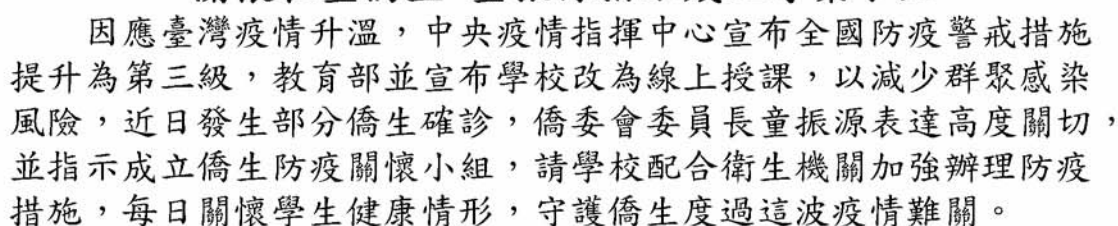 因應臺灣疫情升溫，中央疫情指揮中心宣布全國防疫警戒措施
提升為第三級，教育部並宣布學校改為線上授課，以減少群聚感染
風險，近日發生部分僑生確診，僑委會委員長童振源表達高度關切，
並指示成立僑生防疫關懷小組，請學校配合衛生機關加強辦理防疫
措施，每日關懷學生健康情形，守護僑生度過這波疫情難關。